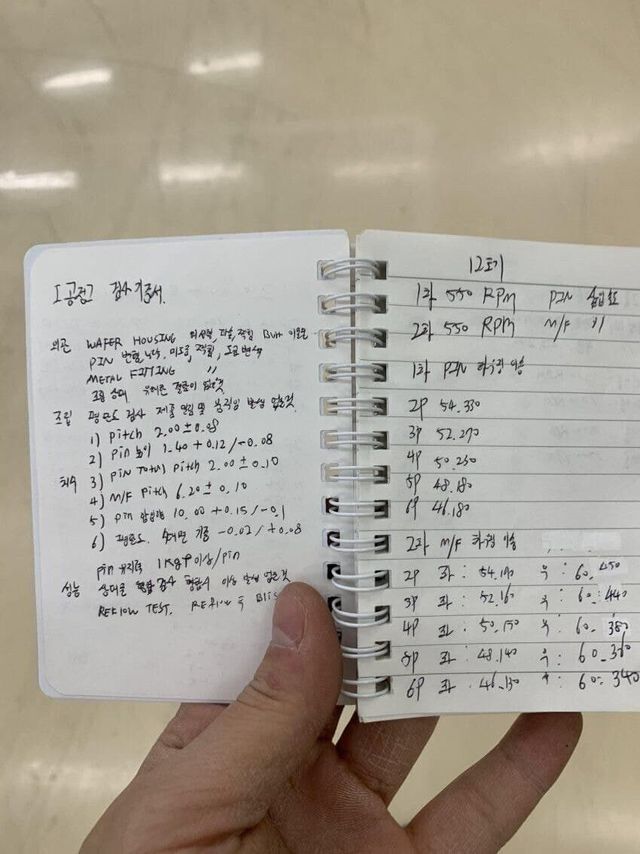 [공정] 검사기준서.
외관 WAFER HOUSING 미성형, 파손, 찍힘, Burr 이물질
PIN 변형, 미도금, 찍힘, 도금변색
METAL FITTING 〃
조립 상태 결함이 없을것
조립 평탄도 검사 제품 및 발생 없을것
1) Pitch 2.00±0.08
2) Pin 높이 1.40 +0.12/-0.08
치수 3) PIN Total Pitch 2.00±0.10
4) M/F Pitch 6.20±0.10
5) Pin 삽입량 10.00 +0.15/-0.1
6) 평탄도. 기준 -0.02/+0.08
Pin 유지력 1Kgf이상/pin
성능 상대물 검사 이상 발생 없을것
REFLOW TEST. REFLOW 후
12호기
1차 550 RPM PIN 삽입 속도
2차 550 RPM M/F 〃
1차 PIN 하우징 이송
2P 54.330
3P 52.290
4P 50.230
5P 48.180
6P 46.180
2차 M/F 하우징 이송
2P 좌 : 54.190 우 : 60.450
3P 좌 : 52.160 우 : 60.440
4P 좌 : 50.150 우 : 60.380
5P 좌 : 48.140 우 : 60.360
6P 좌 : 46.130 우 : 60.340